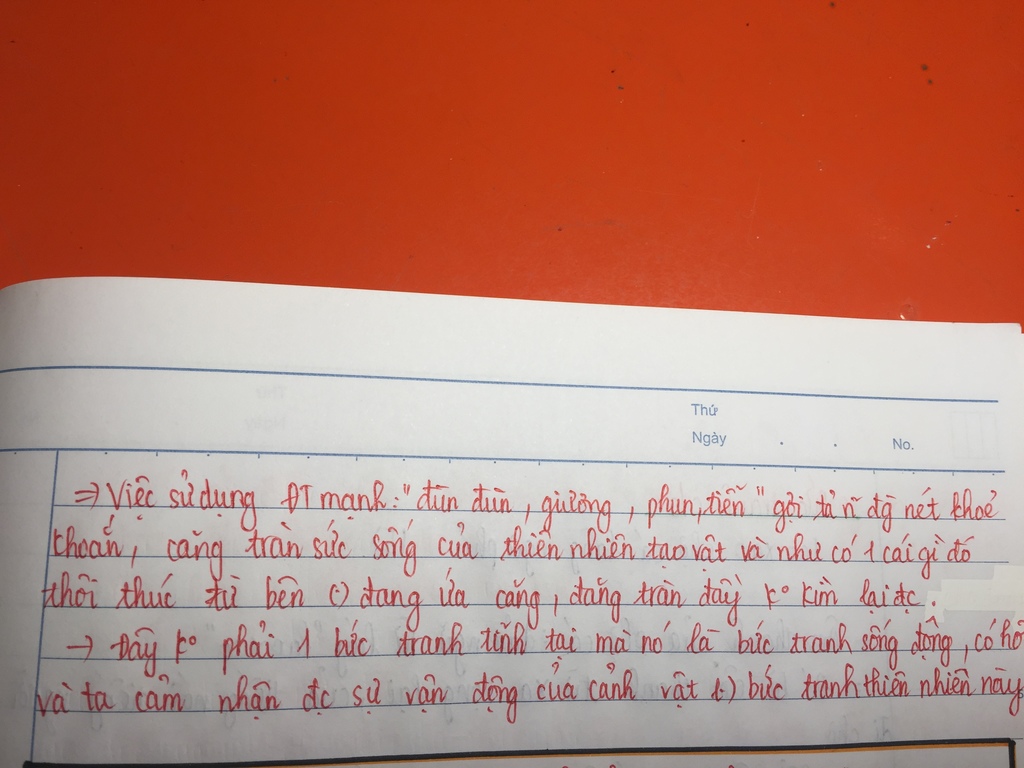 Thứ
Ngày . . No.
⇒ Việc sử dụng ĐT mạnh: "đùn đùn, giương, phun, tiễn" gợi tả n~ đg nét khoẻ
khoắn, căng tràn sức sống của thiên nhiên tạo vật và như có 1 cái gì đó
thôi thúc từ bên () đang ứa căng, đăng tràn đầy ko kìm lại đc.
→ Đây ko phải 1 bức tranh tĩnh tại mà nó là bức tranh sống động, có hồ
và ta cảm nhận đc sự vận động của cảnh vật t) bức tranh thiên nhiên này